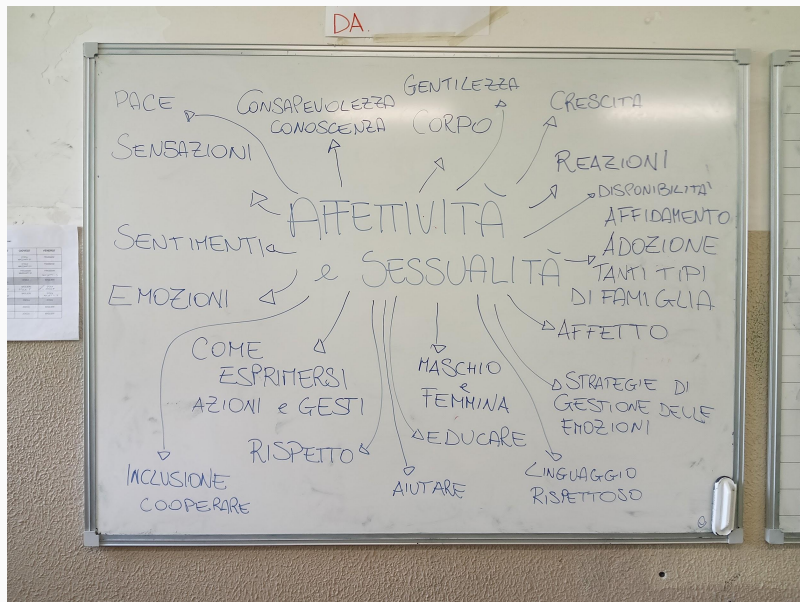 DA.
PACE
CONSAPEVOLEZZA
CONOSCENZA
GENTILEZZA
CORPO
CRESCITA
SENSAZIONI
REAZIONI
DISPONIBILITA'
AFFETTIVITÀ
e SESSUALITÀ
AFFIDAMENTO
ADOZIONE
TANTI TIPI
DI FAMIGLIA
SENTIMENTI
EMOZIONI
AFFETTO
COME
ESPRIMERSI
AZIONI e GESTI
MASCHIO
e
FEMMINA
STRATEGIE DI
GESTIONE DELLE
EMOZIONI
RISPETTO
EDUCARE
INCLUSIONE
COOPERARE
AIUTARE
LINGUAGGIO
RISPETTOSO